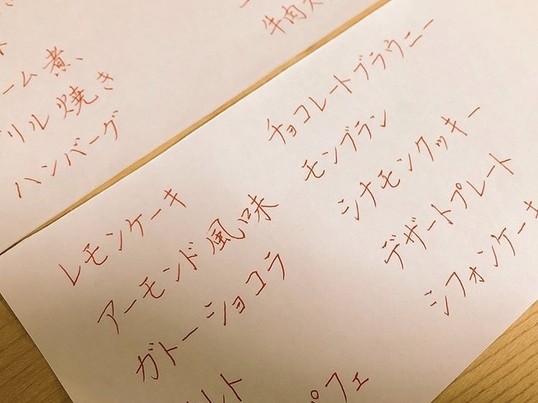 ーム煮、
リル焼き
ハンバーグ
牛肉ス
チョコレートブラウニー
モンブラン
シナモンクッキー
デザートプレート
シフォンケーキ
レモンケーキ
アーモンド風味
ガトーショコラ
レト
パフェ